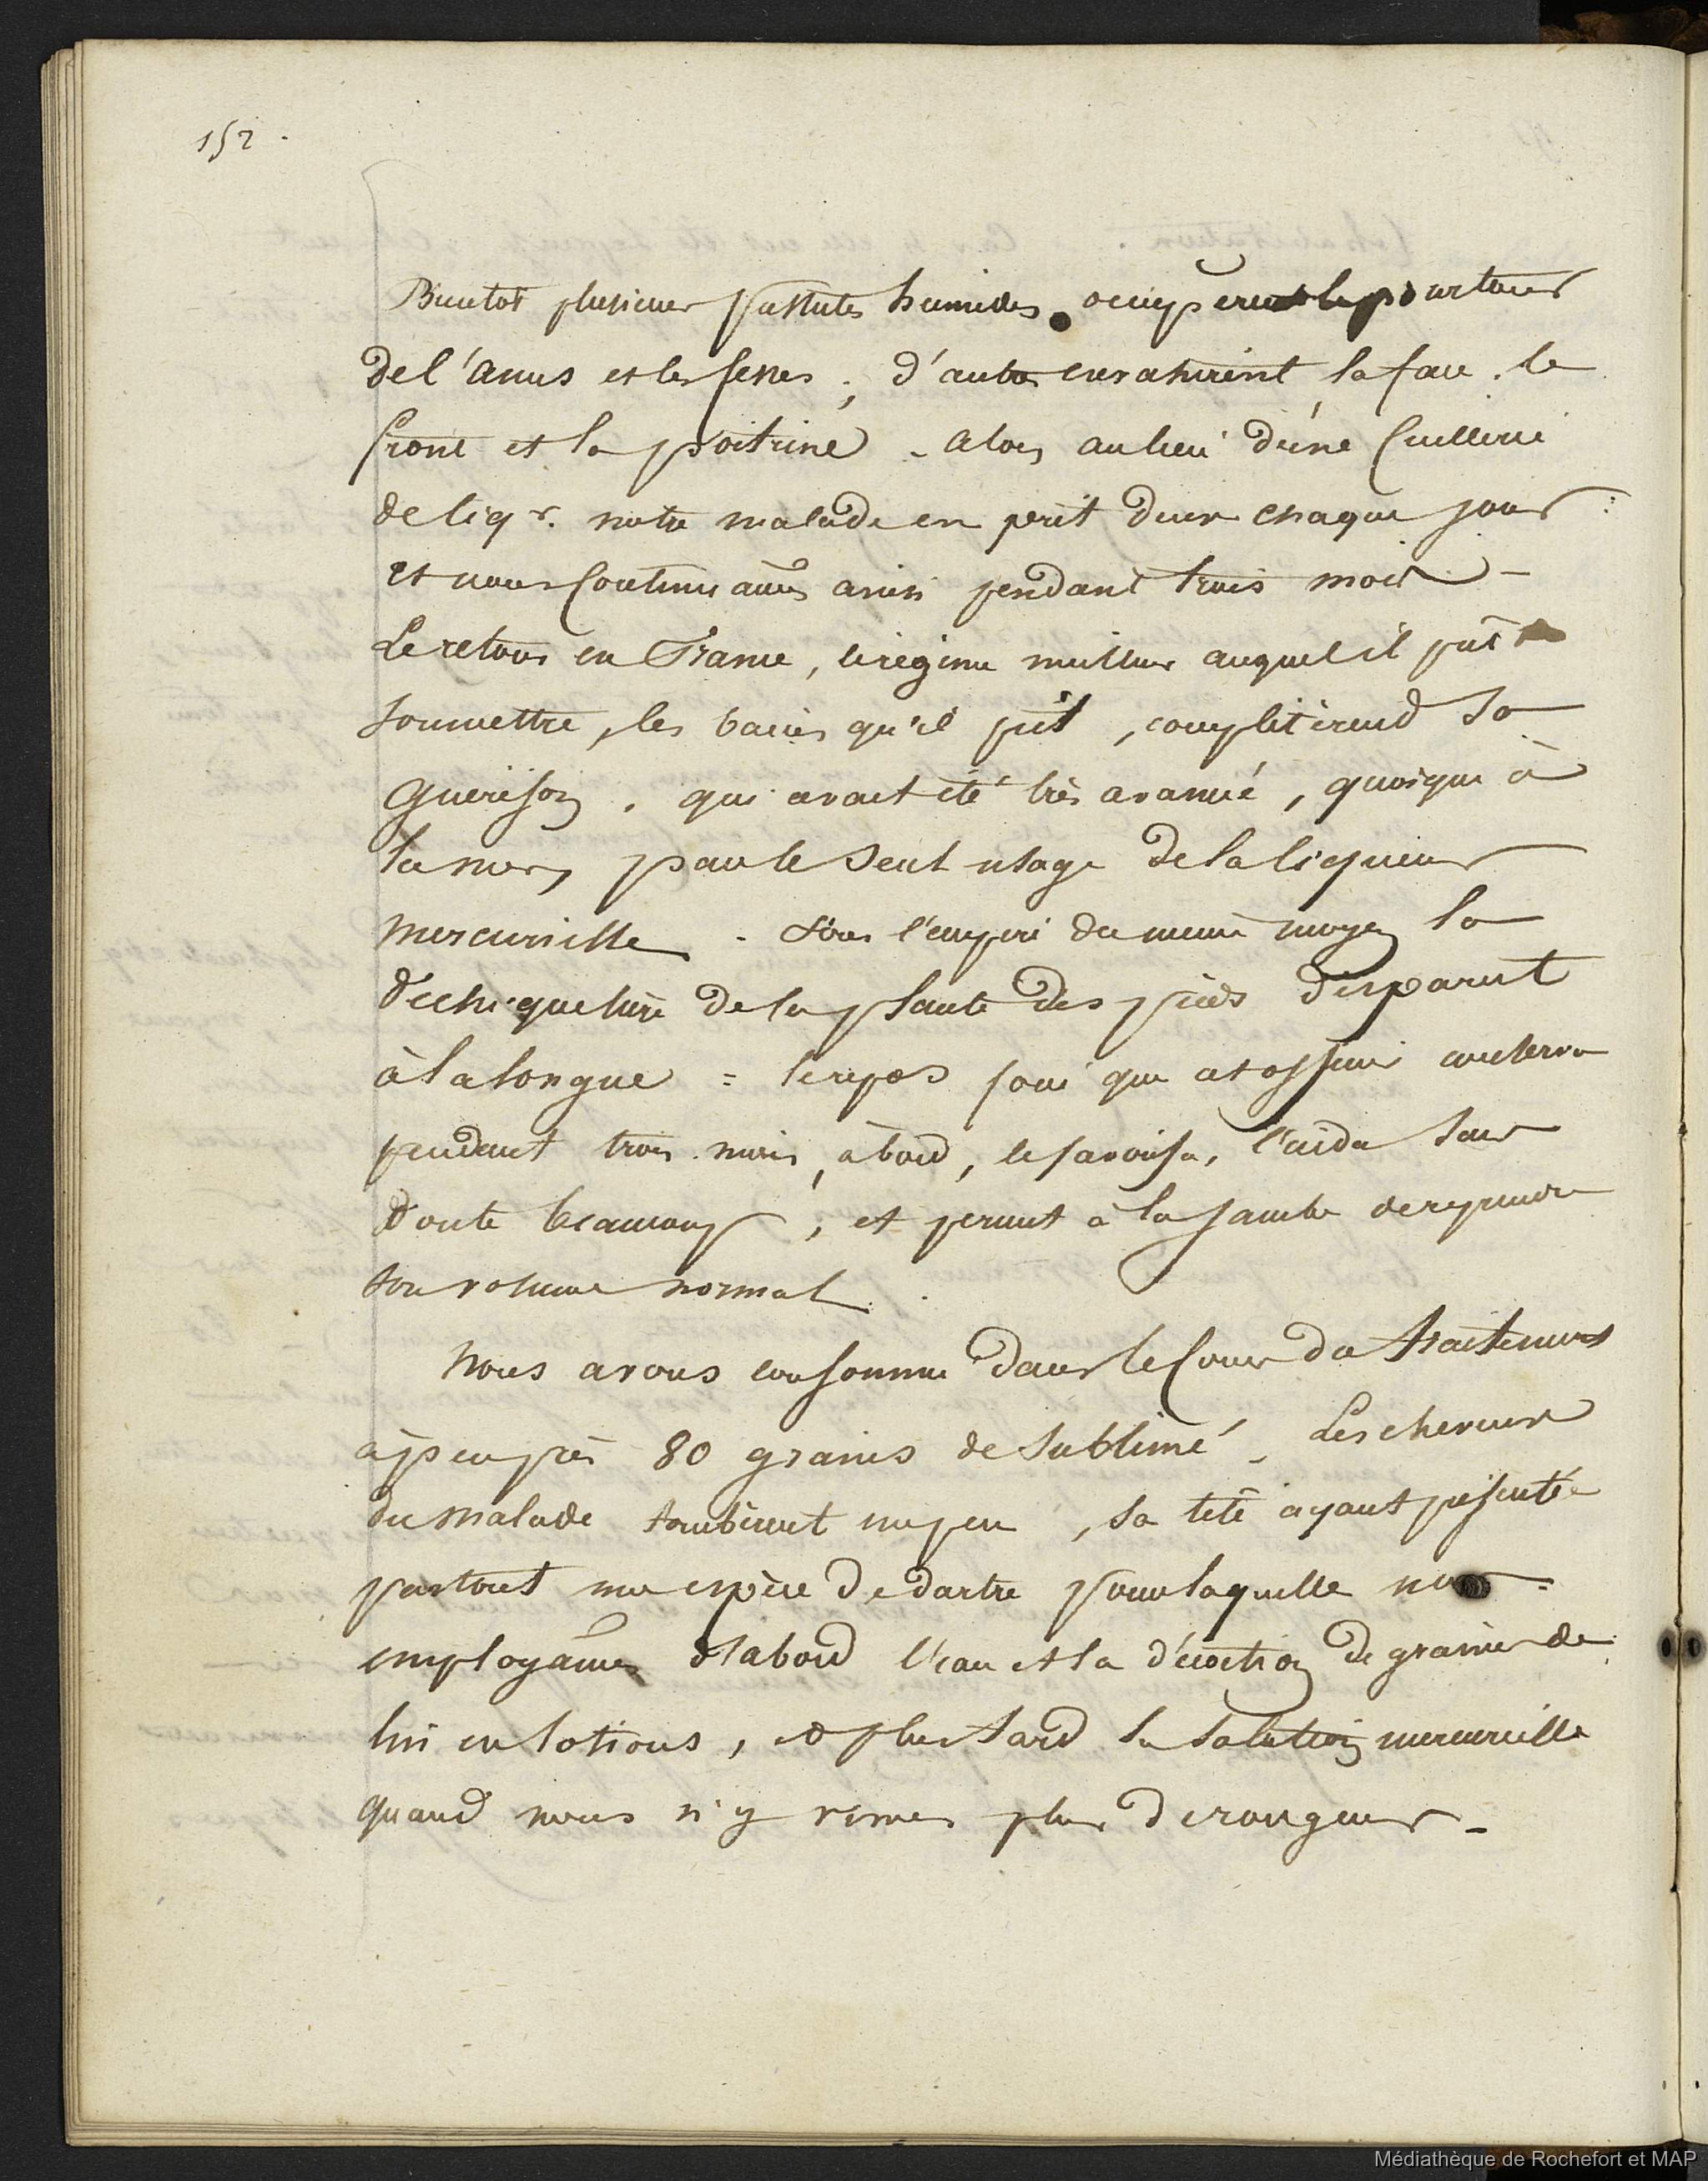 152.
Bientot plusieurs pustules humides occupèrent le pourtour
de l'anus et les fesses; d'autres envahirent la face, le
front et la poitrine - alors au lieu d'une Cuillerée
de liqr. notre malade en prit deux chaque jour :
et nous Continuâmes ainsi pendant trois mois -
Le retour en France, le régime meilleur auquel il pût se
soumettre, les bains qu'il prit, complétèrent sa
guérison, qui avait été très avancée, quoique à
la mer, par le seul usage de la liqueur
mercurielle - Sous l'empire du même moyen la
déchiqueture de la plante des pieds disparut
à la longue = le repos joui que cet officier conserva
pendant trois mois, à bord, le favorisa, l'aida sans
doute beaucoup, et permit à la jambe de reprendre
son volume normal.
Nous avons consommé dans le Cours du traitement
à peu près 80 grains de sublimé - Les cheveux
du malade tombèrent un peu, sa tête ayant présenté
partout une espèce de dartre pour laquelle nous
employâmes d'abord l'eau et la décoction de graines de
lin en lotions, et plus tard la solution mercurielle
quand nous n'y vîmes plus de rougeur -
Médiathèque de Rochefort et MAP